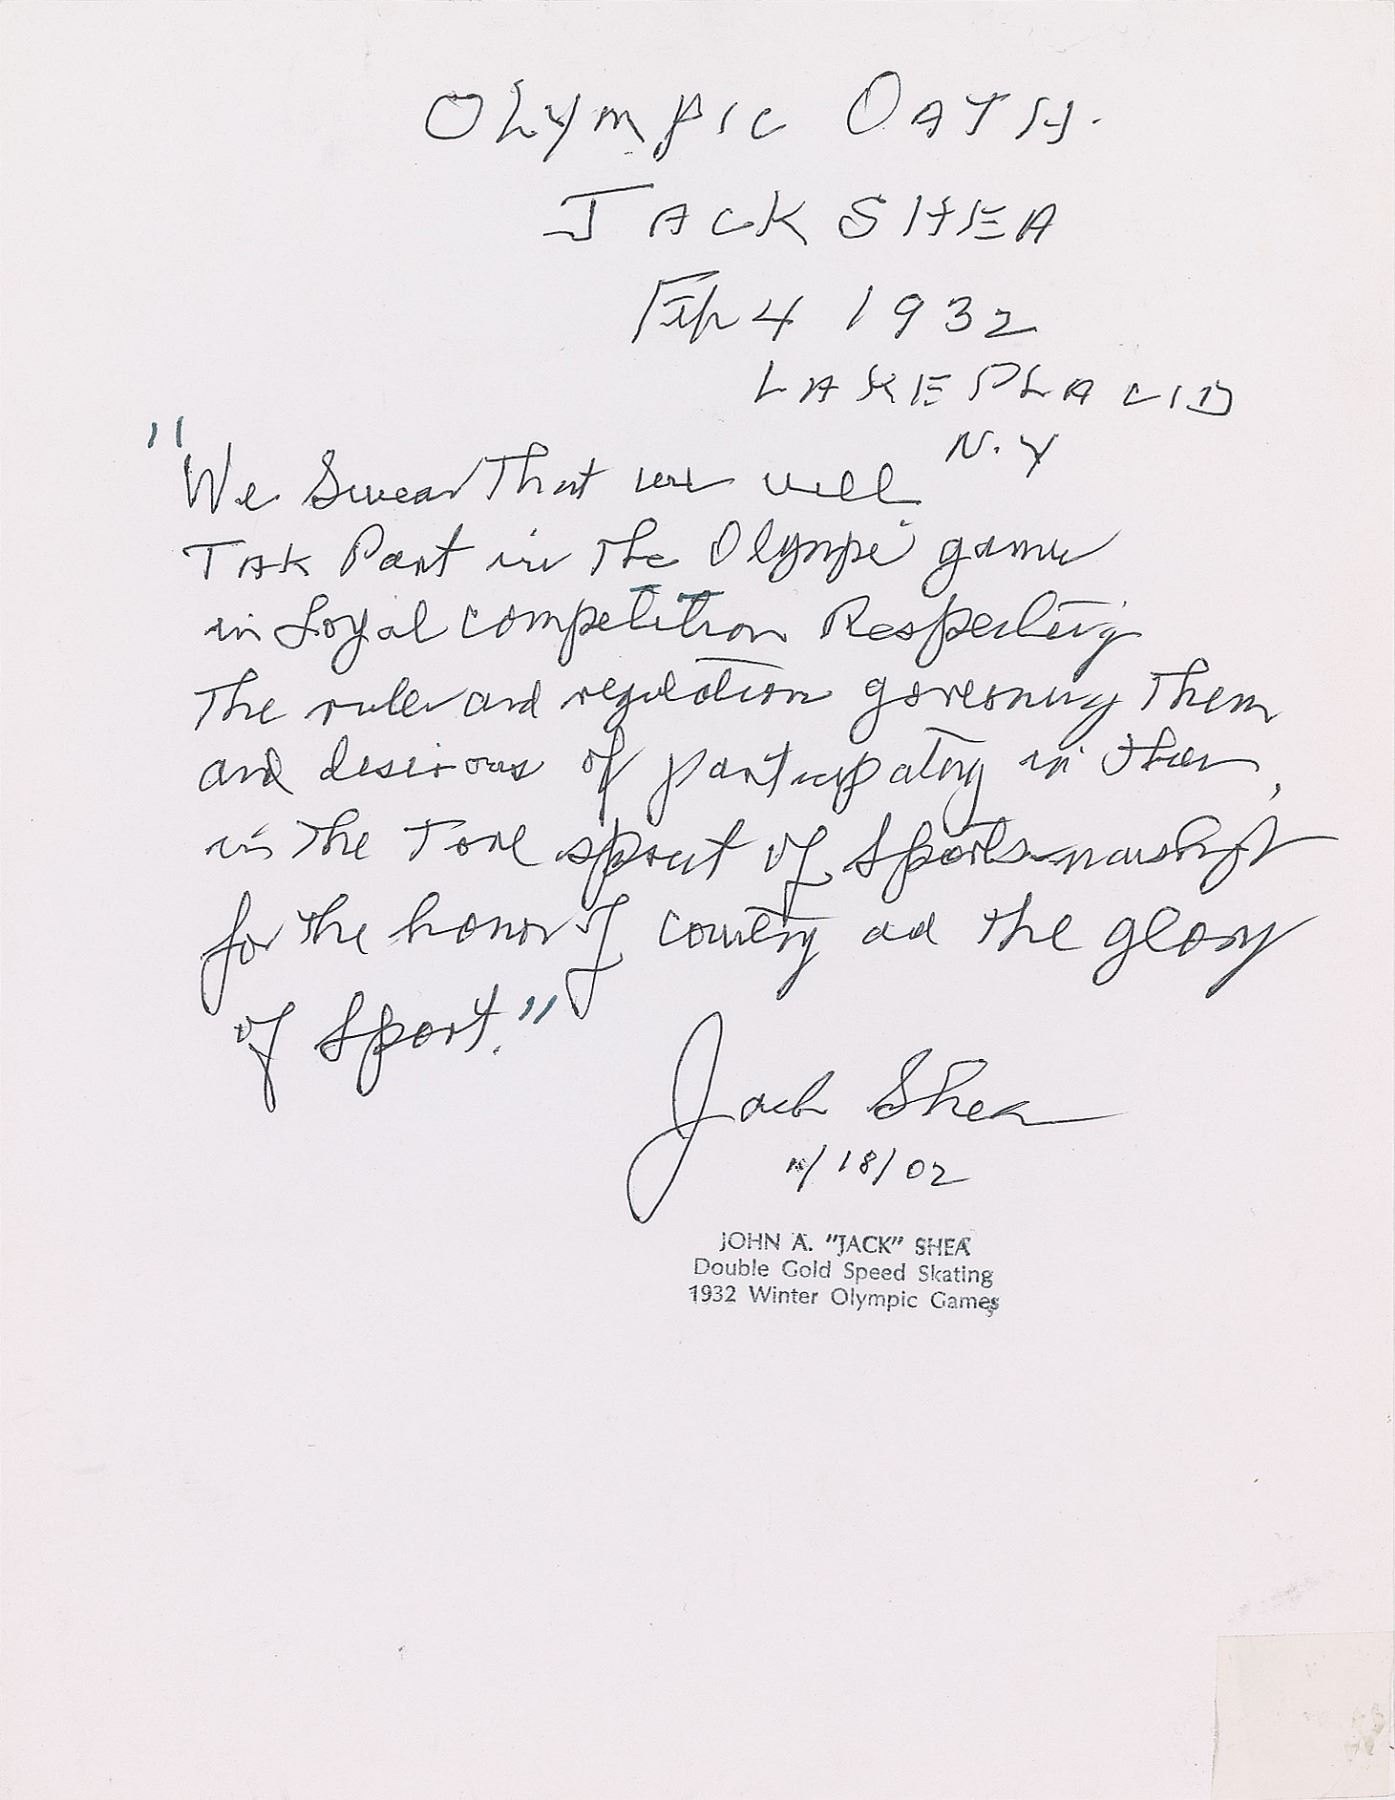 OLYMPIC OATH.
JACK SHEA
Feb 4 1932
LAKE PLACID
N.Y
"We Swear That we will
TAK Part in The Olympic games
in Loyal competition Respecting
The rules and regulation governing Them
and desirous of participating in them,
in The True spirit of Sportsmanship
for the honor of country and the glory
of Sport."
Jack Shea
/18/02
JOHN A. "JACK" SHEA
Double Gold Speed Skating
1932 Winter Olympic Games